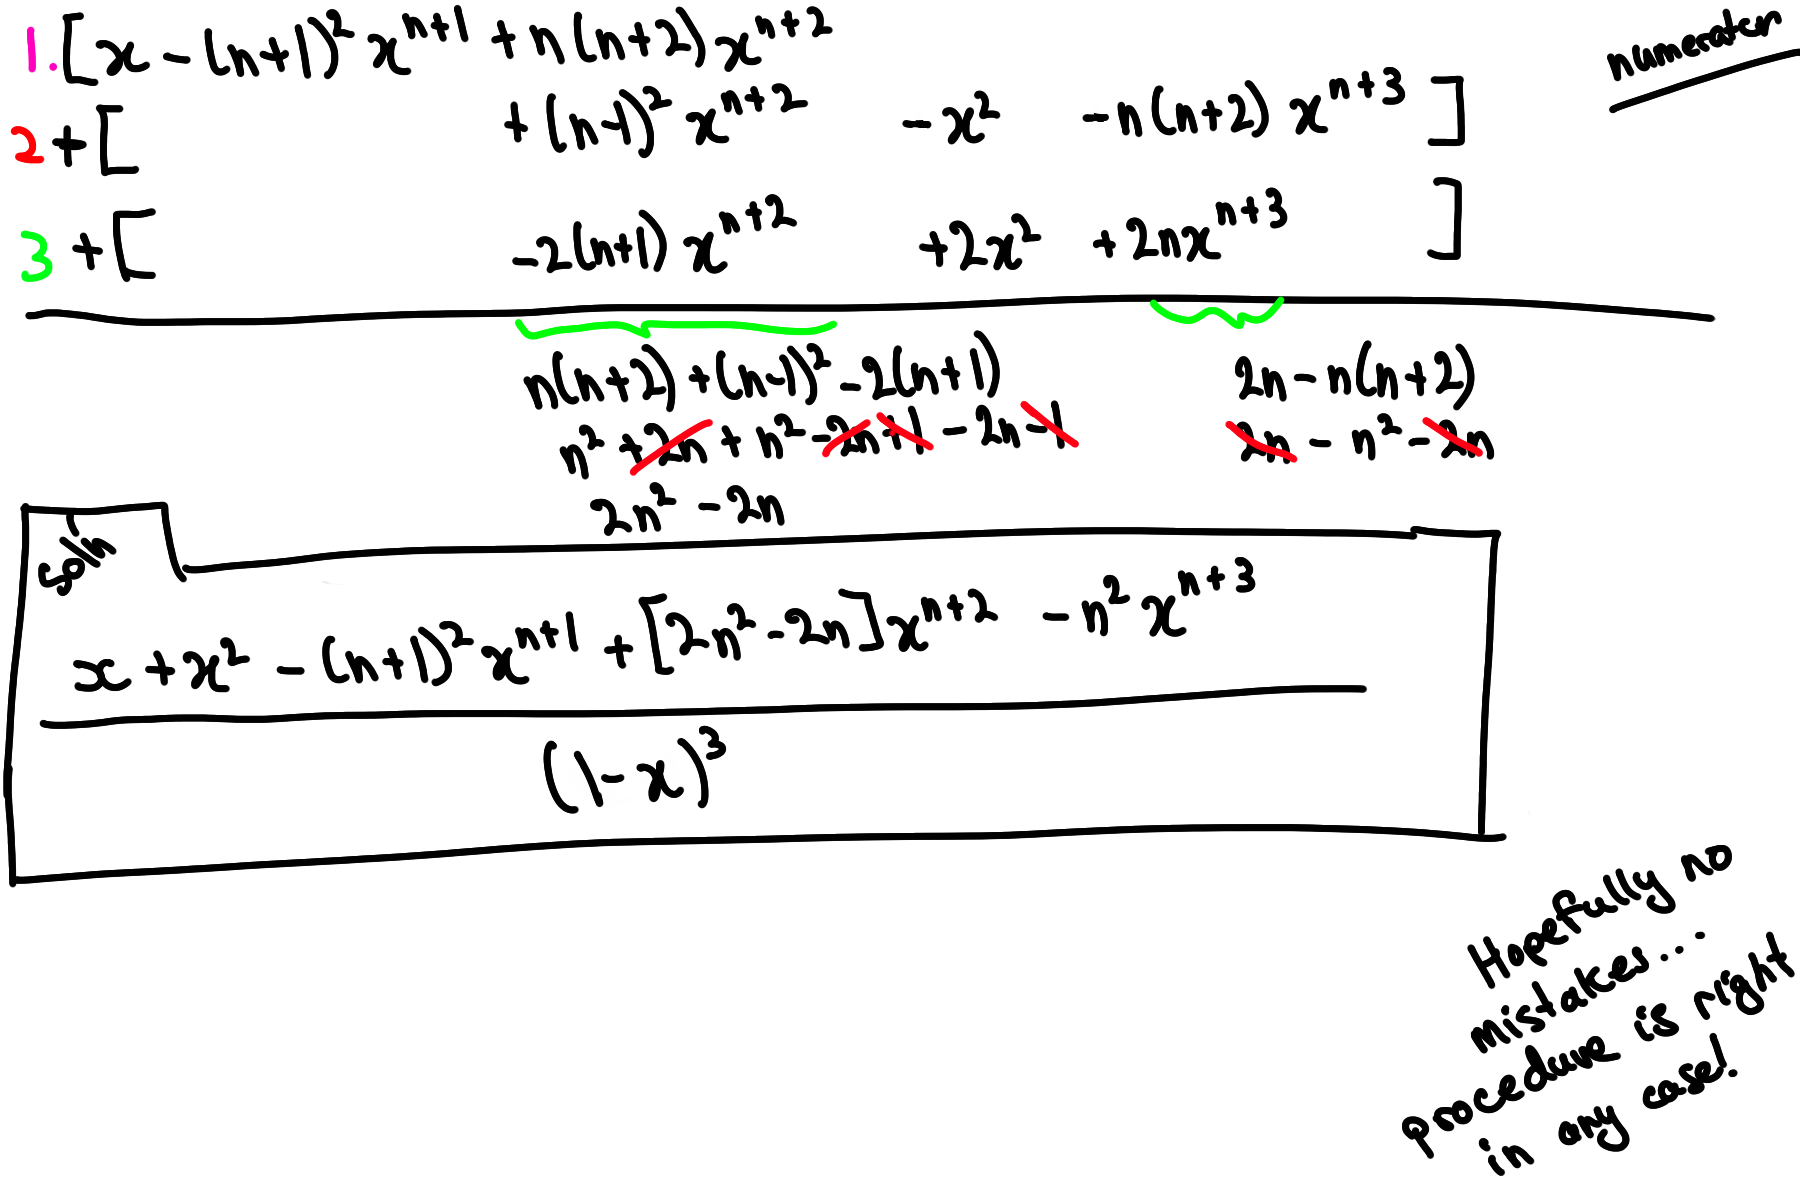 numerater
1. [x - (n+1)² xⁿ⁺¹ + n(n+2) xⁿ⁺²
2 + [ + (n-1)² xⁿ⁺² - x² - n(n+2) xⁿ⁺³ ]
3 + [ - 2(n+1) xⁿ⁺² + 2x² + 2nxⁿ⁺³ ]
n(n+2) + (n-1)² - 2(n+1) 2n - n(n+2)
n² + 2n + n² - 2n + 1 - 2n - 1 2n - n² - 2n
2n² - 2n
soln
x + x² - (n+1)² xⁿ⁺¹ + [2n² - 2n] xⁿ⁺² - n² xⁿ⁺³
(1 - x)³
Hopefully no
mistakes...
procedure is right
in any case!